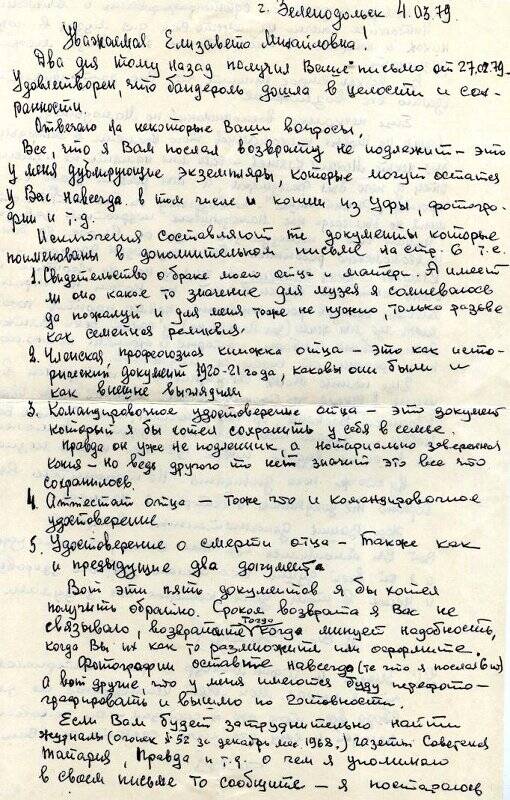 г. Зеленодольск 4.03.79.
Уважаемая Елизавета Михайловна!
Два дня тому назад получил Ваше письмо от 27.02.79.
Удовлетворен, что бандероль дошла в целости и сох-
ранности.
Отвечаю на некоторые Ваши вопросы,
Все, что я Вам послал возврату не подлежит – это
у меня дублирующие экземпляры, которые могут остатся
у Вас навсегда в том числе и копии из Уфы, фотогра-
фии и т.д.
Исключения составляют те документы которые
поименованы в дополнительном письме на стр. 6 т.е.
1. Свидетельство о браке моего отца и матери. А имеет
ли оно какое то значение для музея я сомневаюсь
да пожалуй и для меня тоже не нужно, только разве
как семейная реликвия.
2. Членская, профсоюзная книжка отца – это как исто-
рический документ 1920-21 года, каковы они были и
как внешне выглядили
3. Командировочное удостоверение отца – это документ
который я бы хотел сохранить у себя в семье.
Правда он уже не подлинник, а нотариально заверенная
копия – но ведь другого то нет, значит это все что
сохранилось.
4. Аттестат отца – тоже что и командировочное
удостоверение.
5. Удостоверение о смерти отца – также как
и предыдущие два документа
Вот эти пять документов я бы хотел
получить обратно. Сроком возврата я Вас не
связываю, возвратите тогда когда минует надобность,
когда Вы их как то размножите или оформите.
Фотографии оставьте навсегда (те что я послал 6 шт)
а вот другие, что у меня имеются буду перефото-
графировать и вышлю по готовности.
Если Вам будет затруднительно найти
журналы (огонек № 52 за декабрь м-ц 1968.) газеты Советская
Татария, Правда и т.д. о чем я упоминаю
в своем письме то сообщите – я постараюсь